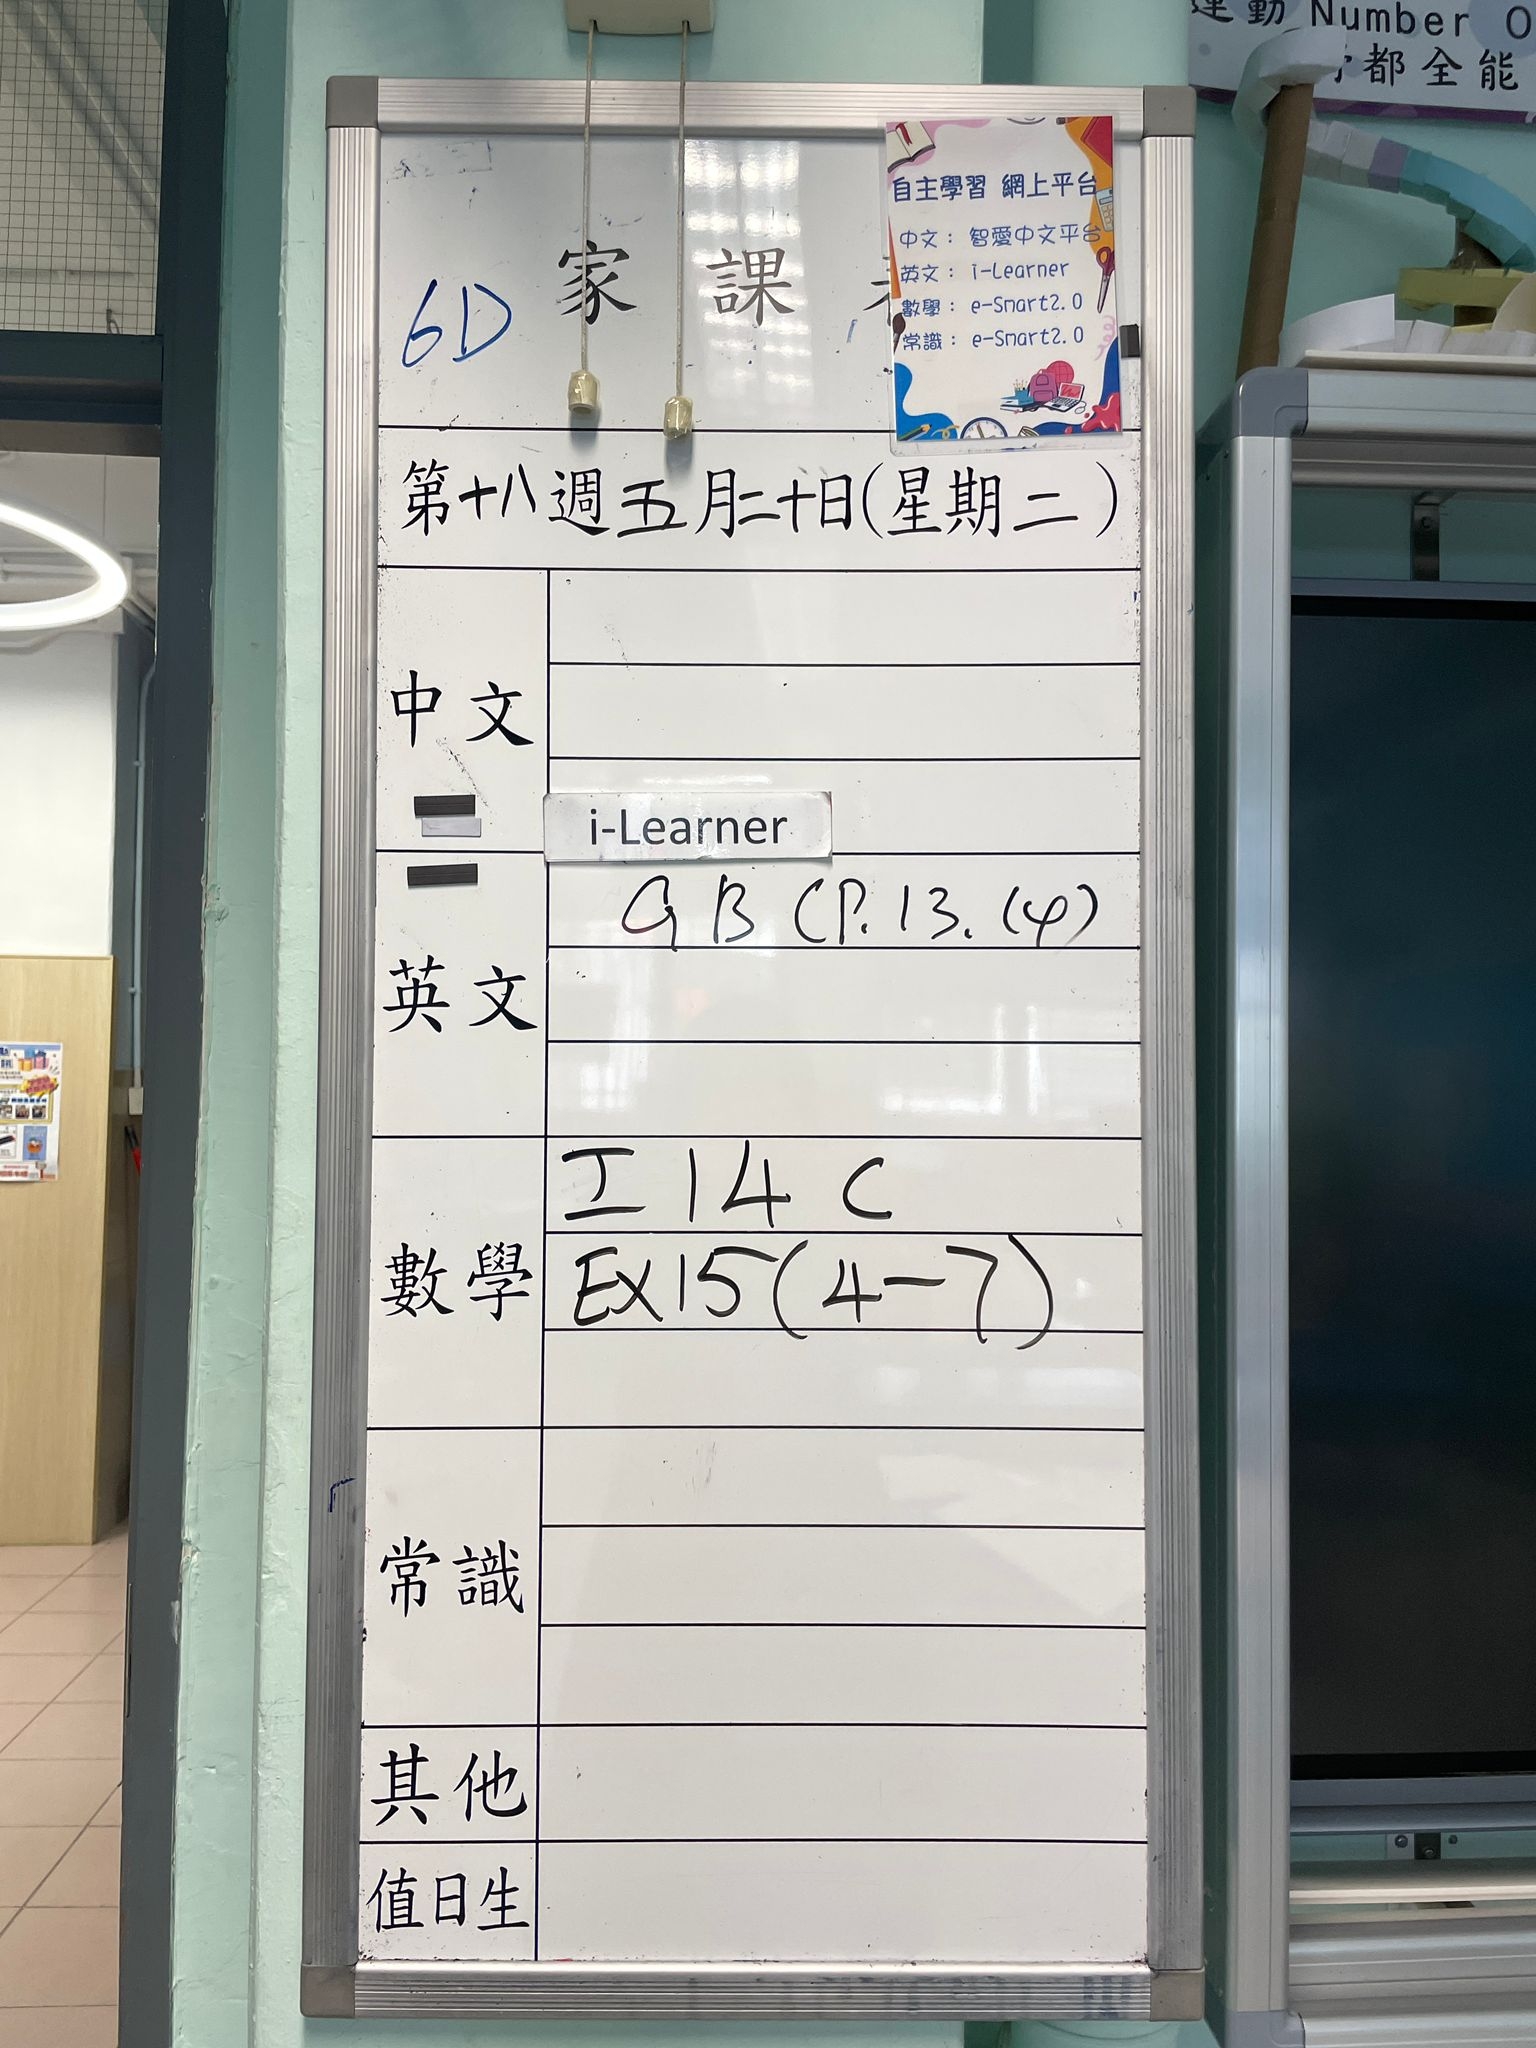 運動 Number O
都全能
家課
6D
自主學習 網上平台
中文： 智愛中文平台
英文： i-Learner
數學： e-Smart2.0
常識： e-Smart2.0
第十八週五月二十日(星期二)
中文
i-Learner
英文
GB (P.13. (4)
數學
I 14 C
EX15(4-7)
常識
其他
值日生